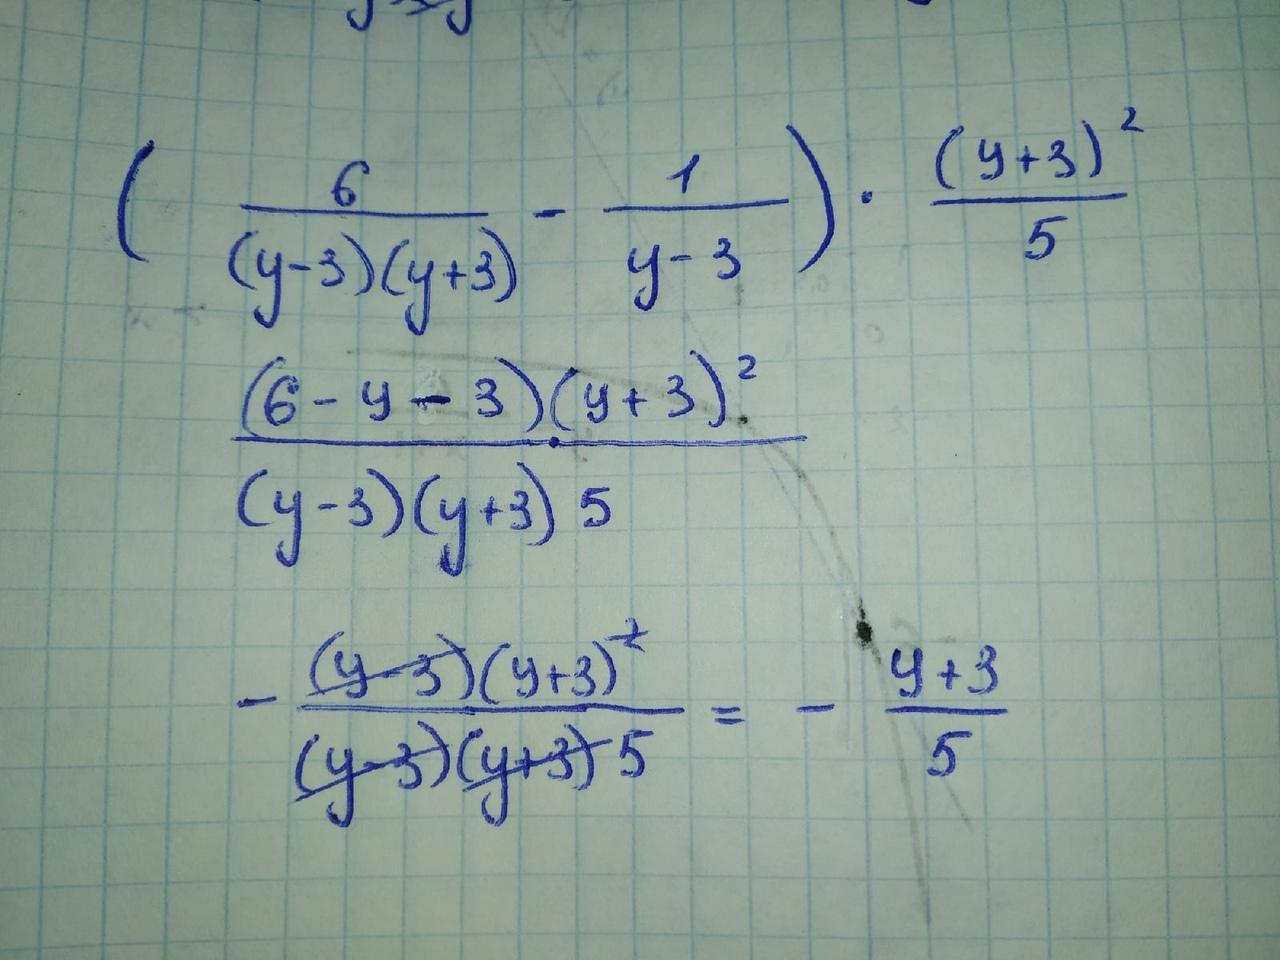 ( 6 / (y-3)(y+3) - 1 / y-3 ) · (y+3)² / 5
(6 - y - 3)(y+3)² / (y-3)(y+3) 5
- (y-3)(y+3)² / (y-3)(y+3) 5 = - y+3 / 5